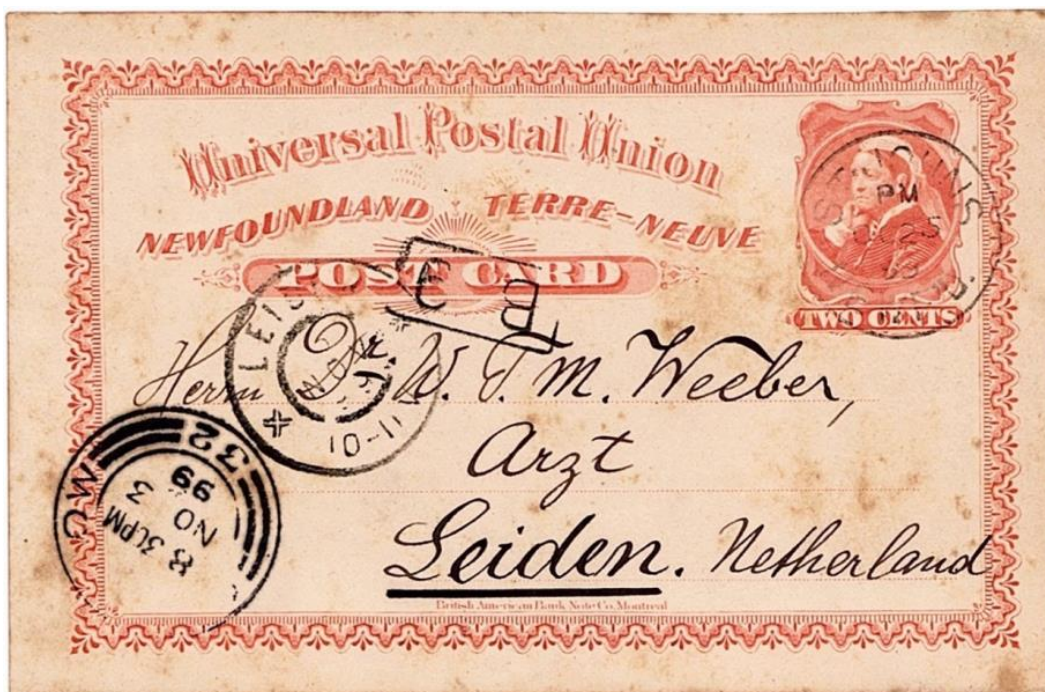 Universal Postal Union
NEWFOUNDLAND TERRE-NEUVE
POST CARD
TWO CENTS
ST. JOHN'S
PM
25
LEID
NOV
10-11
Herrn Dr W. T. M. Weeber,
Arzt
Leiden. Netherland
W.C
32
8 31 PM
NO 3
99
British American Bank Note Co. Montreal